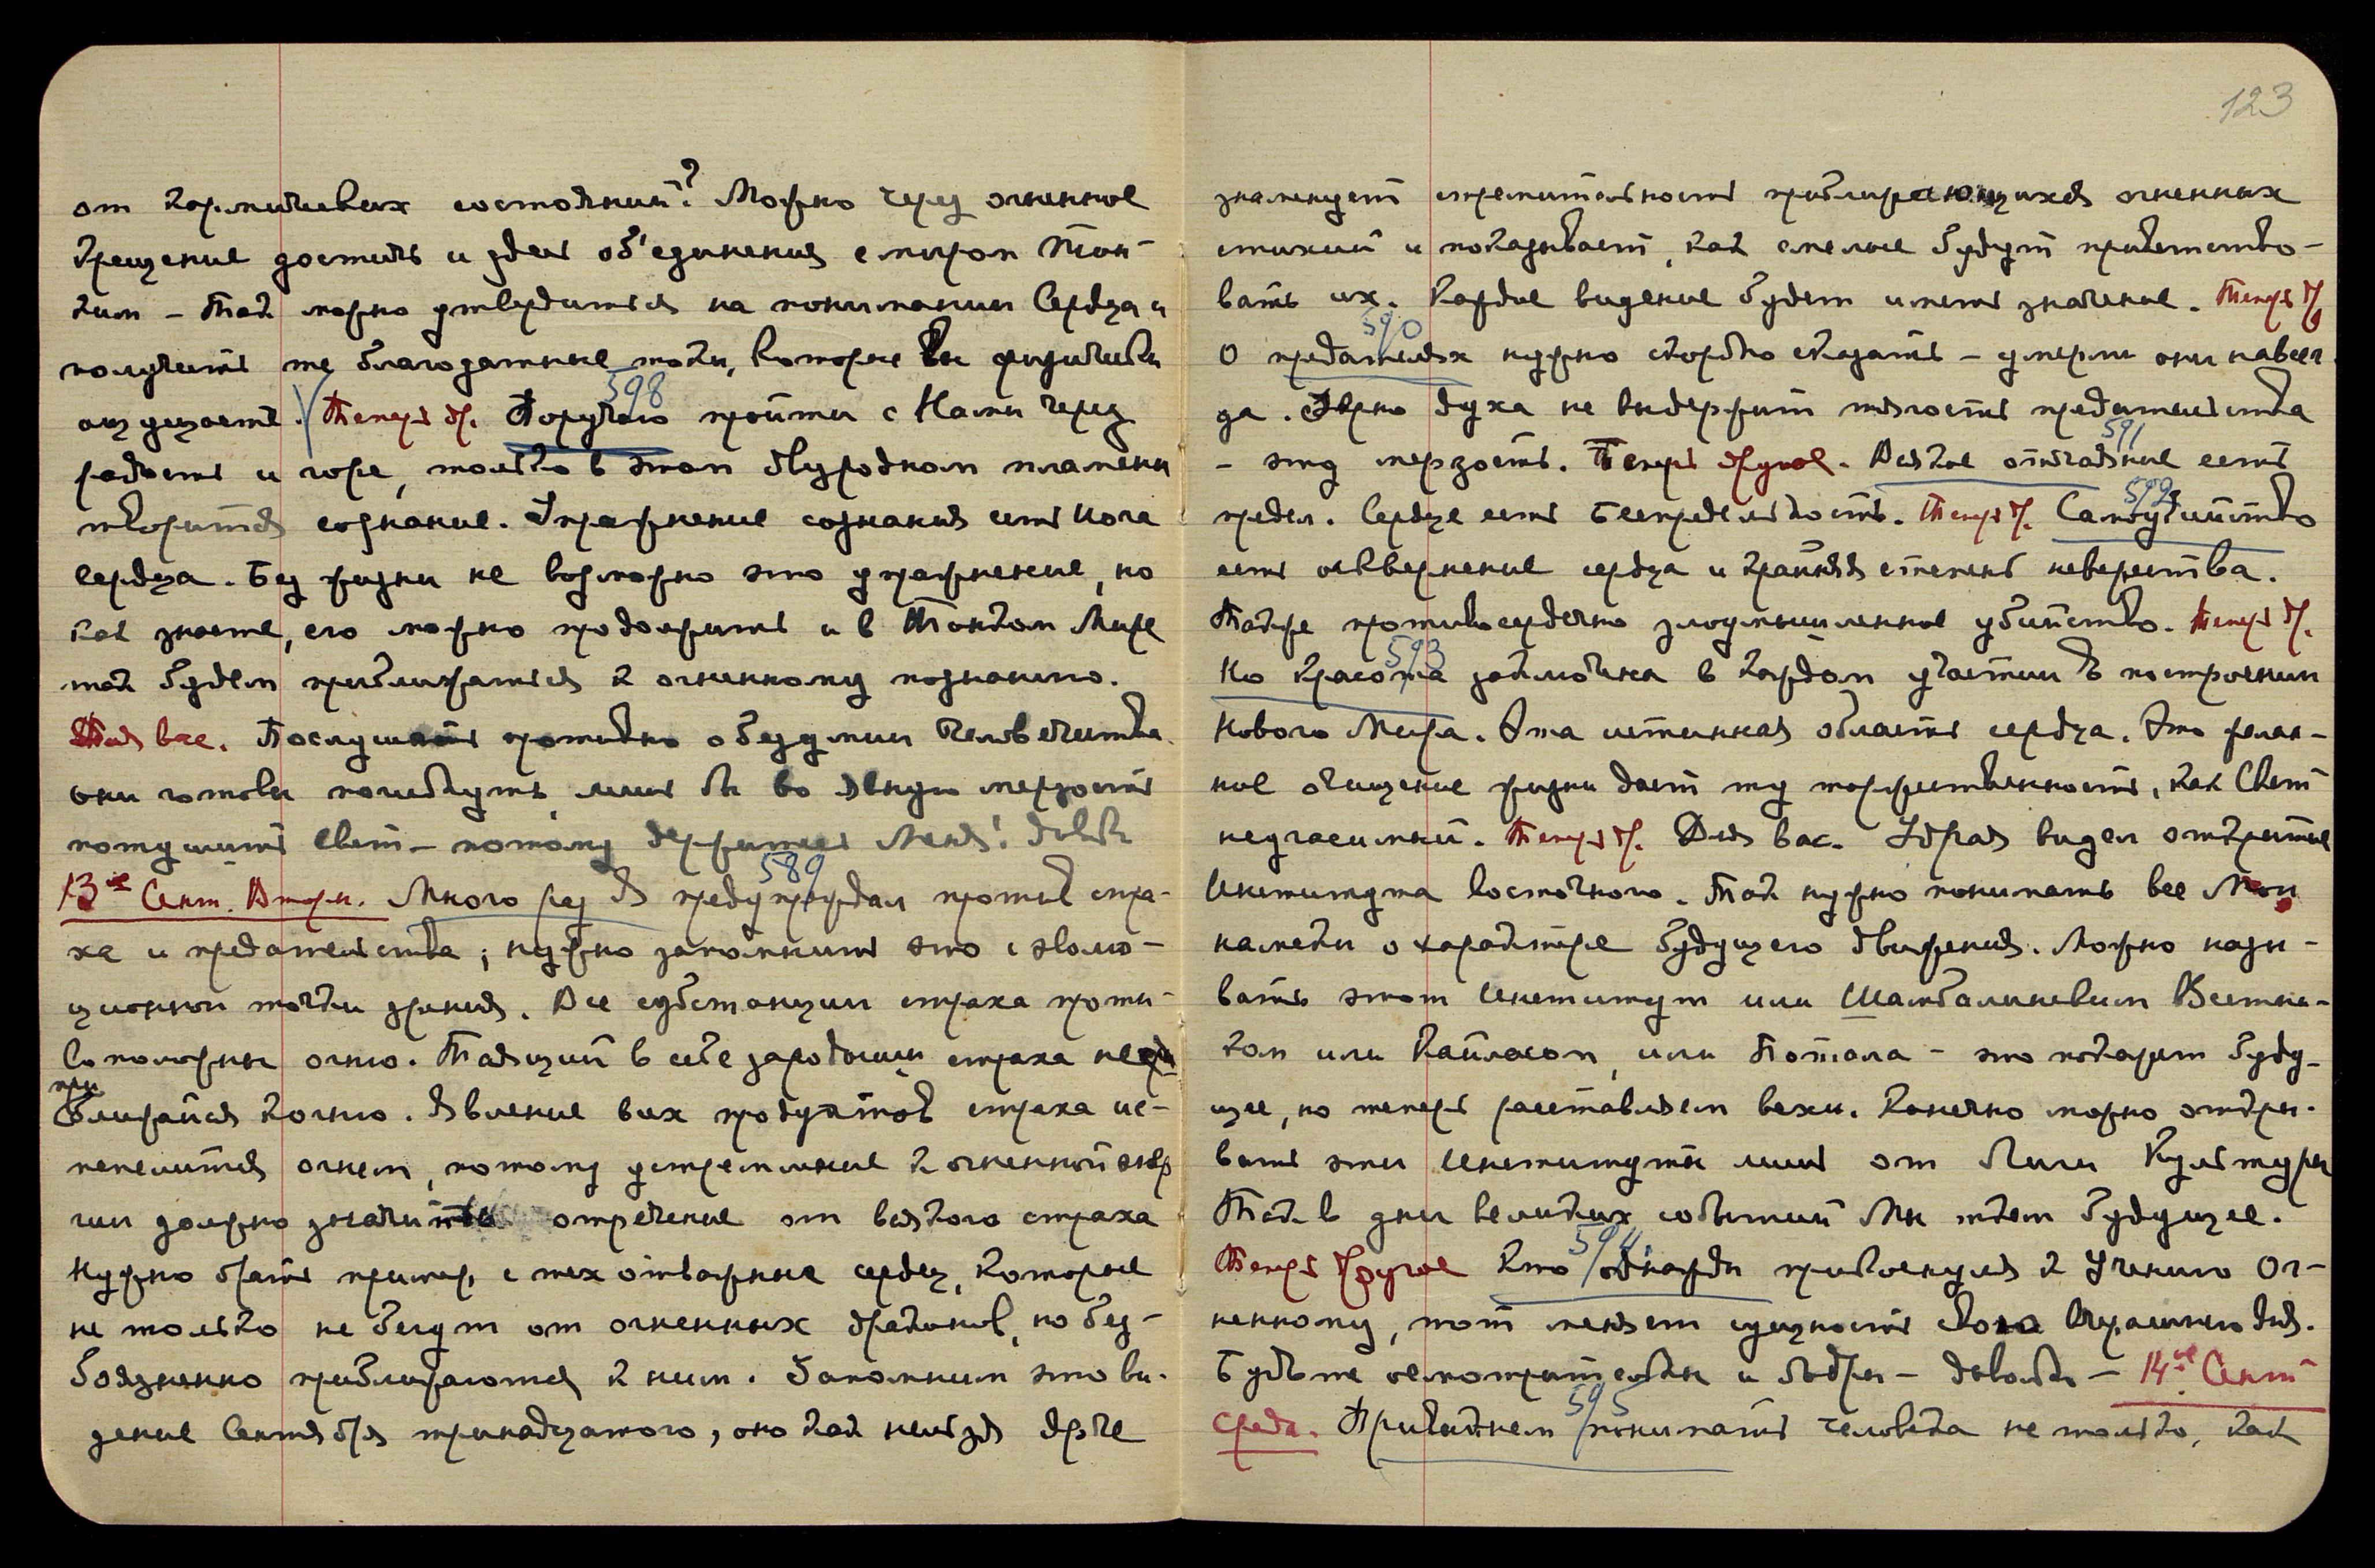 от кармических состояний? Можно через огненное
крещение достичь и здесь об'единения с миром Тон-
ким – так можно утвердиться на понимании Сердца и
получить те благодатные токи, которые вы физически
ощущаете. Теперь др. 598 Поручаю пройти с Нами через
радость и горе, только в этом двуродном пламени
творится сознание. Упражнение сознания есть Йога
сердца. Без жизни не возможно это упражнение, но
как знаете, его можно продолжить и в Тонком Мире
так будем приближаться к огненному познанию.
Для вас. Послушайте противно о безумии человечества.
они готовы погибнуть, лишь бы во явную мерзость
потушить Свет – потому держитесь Меня! довольно
13ое Сент. Вторн. 589 Много раз Я предупреждал против стра-
ха и предательства; нужно запомнить это с эволю-
ционной точки зрения. Все субстанции страха проти-
воположны огню. Таящий в себе зародыши страха не
приближайся к огню. Явление всех продуктов страха ис-
пепелится огнем, потому устремление к огненной энер
гии должно значить отречение от всякого страха
Нужно брать пример с тех отважных сердец, которые
не только не бегут от огненных драконов, но без-
боязненно приближаются к ним. Запомним это ви-
дение Сентября тринадцатого, оно как нельзя ярче
123
знаменует стремительность приближающихся огненных
стихий и показывает, как смелые будут приветство-
вать их. Каждое видение будет иметь значение. Теперь др.
590 О предателях нужно скорбно сказать – умерли они навсег
да. Зерно духа не выдержит тягость предательства
– это мерзость. Теперь другое. 591 Всякое отчаяние есть
предел. Сердце есть Беспредельность. Теперь др. 592 Самоубийство
есть осквернение сердца и крайняя степень невежества.
Также противосердечно злоумышленное убийство. Теперь др.
593 Но красота заключена в каждом участии в построении
Нового Мира. Эта истинная область сердца. Это желан-
ное очищение жизни дает ту торжественность, как Свет
неугасимый. Теперь др. Для вас. Удрая видел открытие
Института Восточного. Так нужно понимать все Мои
намеки о характере будущего движения. Можно назы-
вать этот Институт или Шамбалинским Вестни-
ком или Кайласом, или Потала – это покажет буду-
щее, но теперь расставляем вехи. Конечно можно откры-
вать эти Институты лишь от Лиги Культуры
Так в дни великих событий Мы ткем будущее.
Теперь другое 594. Кто однажды прикоснулся к Учению Ог-
ненному, тот меняет сущность Свою Вчерашнего дня.
Будьте осмотрительны и бодры – довольно – 14ое Сент
среда. 595 Привыкнем понимать человека не только, как